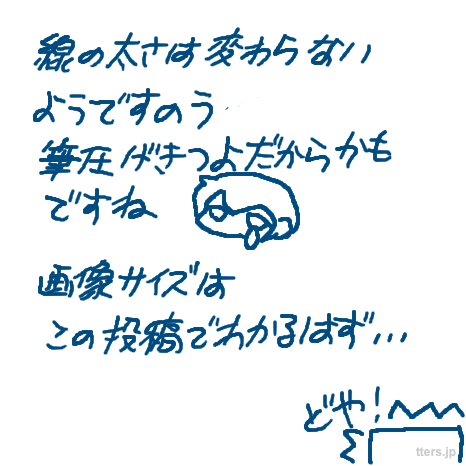 線の太さは変わらない
ようですのう
筆圧げきつよだからかも
ですね
画像サイズは
この投稿でわかるはず...
どや!
tters.jp